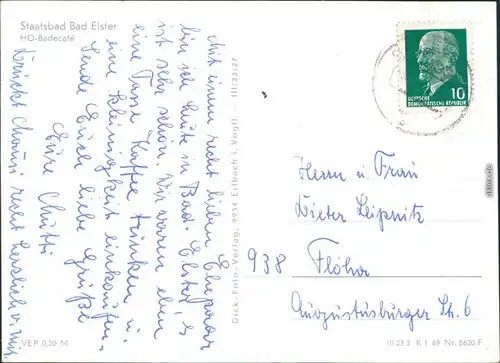 Staatsbad Bad Elster
HO-Badecafé
Mit einem recht lieben Ehepaar
bin ich heute in Bad-Elster, es
ist sehr schön. Wir waren eben
eine Tasse Kaffee trinken u.
eine Kleinigkeit einkaufen.
Sende Euch liebe Grüße
Eure Mutti
drückt recht herzlich v. mir
Dick-Foto-Verlag, 9934 Erlbach i. Vogtl. — III/23/27
10
DEUTSCHE
DEMOKRATISCHE REPUBLIK
Herrn u. Frau
Dieter Leipnitz
938 Flöha
Augustusburger Str. 6
VEP 0,20 M
III 23 3 K 1 69 Nr. 8620 F